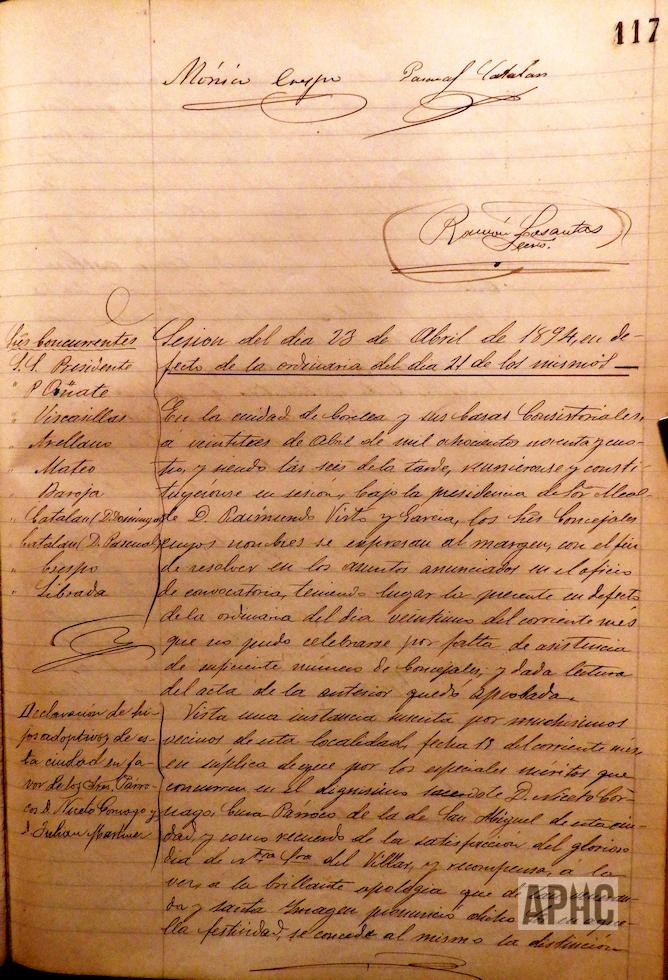 117
Mónico Crespo Pascual Catalan
Ramón Lasantas
Secro.
Sres Concurrentes
S. S. Presidente
" P. Oñate
" Viscasillas
" Arellano
" Mateo
" Baroja
" Catalan (D. Domingo)
" Catalan (D. Pascual)
" Crespo
" Librada
Sesion del dia 23 de Abril de 1894, en de-
fecto de la ordinaria del dia 21 de los mismos
En la ciudad de Corella y sus Casas Consistoriales,
a veintitres de Abril de mil ochocientos noventa y cua-
tro, y siendo las seis de la tarde, reunieronse y consti-
tuyeronse en sesion, bajo la presidencia del Sor Alcal-
de D. Raimundo Virto y Garcia, los Sres Concejales
cuyos nombres se expresan al margen, con el fin
de resolver en los asuntos anunciados en el oficio
de convocatoria, teniendo lugar la presente en defecto
de la ordinaria del dia veintiuno del corriente mes
que no pudo celebrarse por falta de asistencia
de suficiente numero de Concejales, y dada lectura
del acta de la anterior quedó aprobada.
Declaracion de hi-
jos adoptivos de es-
ta ciudad en fa-
vor de los Sres Párro-
cos D. Niceto Cornago y
D. Julian Martinez
Vista una instancia suscrita por muchisimos
vecinos de esta localidad, fecha 18 del corriente mes,
en súplica de que por los especiales méritos que
concurren en el dignisimo sacerdote D. Niceto Cor-
nago, Cura Párroco de la de San Miguel de esta ciu-
dad, y como recuerdo de la satisfaccion del glorioso
dia de Ntra Sra del Villar, y recompensa, á la
vez, a la brillante apologia que de tan
da y santa Imagen pronunció dicho en aque-
lla festividad, se conceda al mismo la distincion
APHC